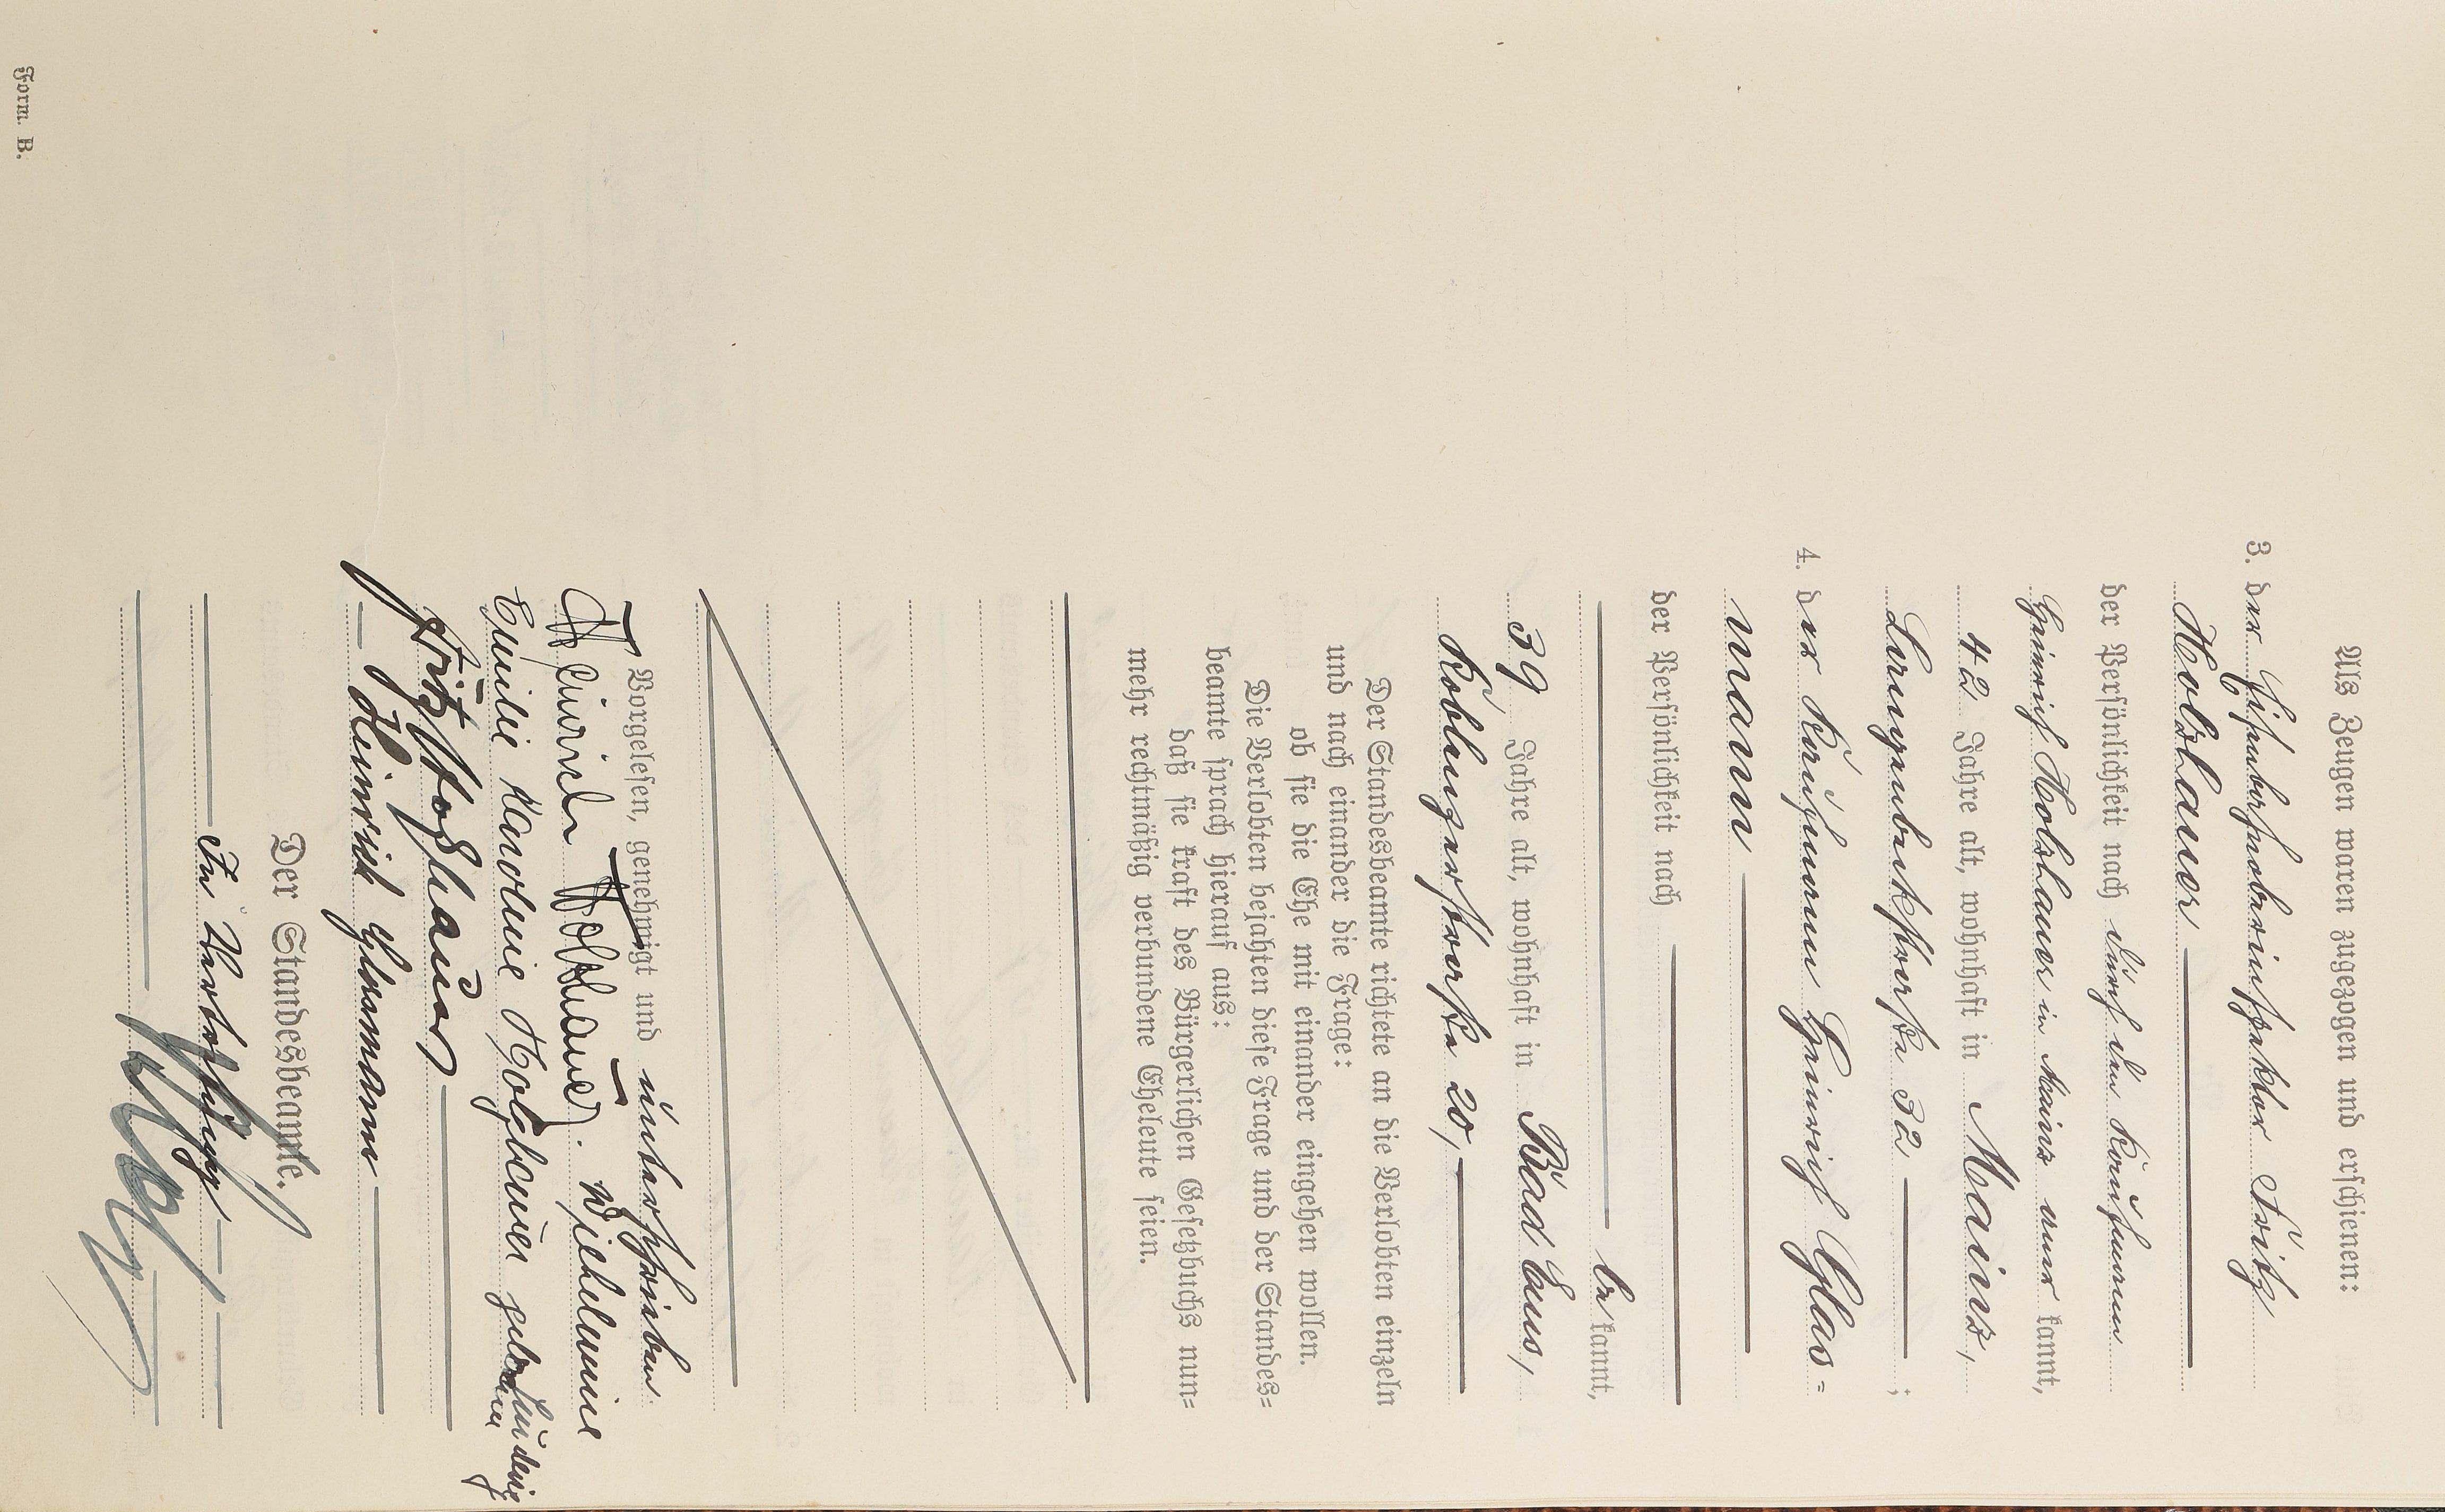 Als Zeugen waren zugezogen und erschienen:
3. der Eisenbahnobersinspektor Fritz
Holzhauer
der Persönlichkeit nach durch den Kaufmann
Heinrich Holzhauer in Mainz aner kannt,
42 Jahre alt, wohnhaft in Mainz,
32 ;
4. der Kaufmann Heinrich Glas=
mann
der Persönlichkeit nach
be kannt,
39 Jahre alt, wohnhaft in Bad Ems,
Koblenzerstraße 20,
Der Standesbeamte richtete an die Verlobten einzeln
und nach einander die Frage:
ob sie die Ehe mit einander eingehen wollen.
Die Verlobten bejahten diese Frage und der Standes=
beamte sprach hierauf aus:
daß sie kraft des Bürgerlichen Gesetzbuchs nun=
mehr rechtmäßig verbundene Eheleute seien.
Vorgelesen, genehmigt und unterschrieben
Heinrich Holzhauer. Wilhelmine
Emilie Karoline Holzhauer geborene
Fritz Holzhauer
Heinrich Glasmann
Der Standesbeamte.
In Vertretung
Form. B.